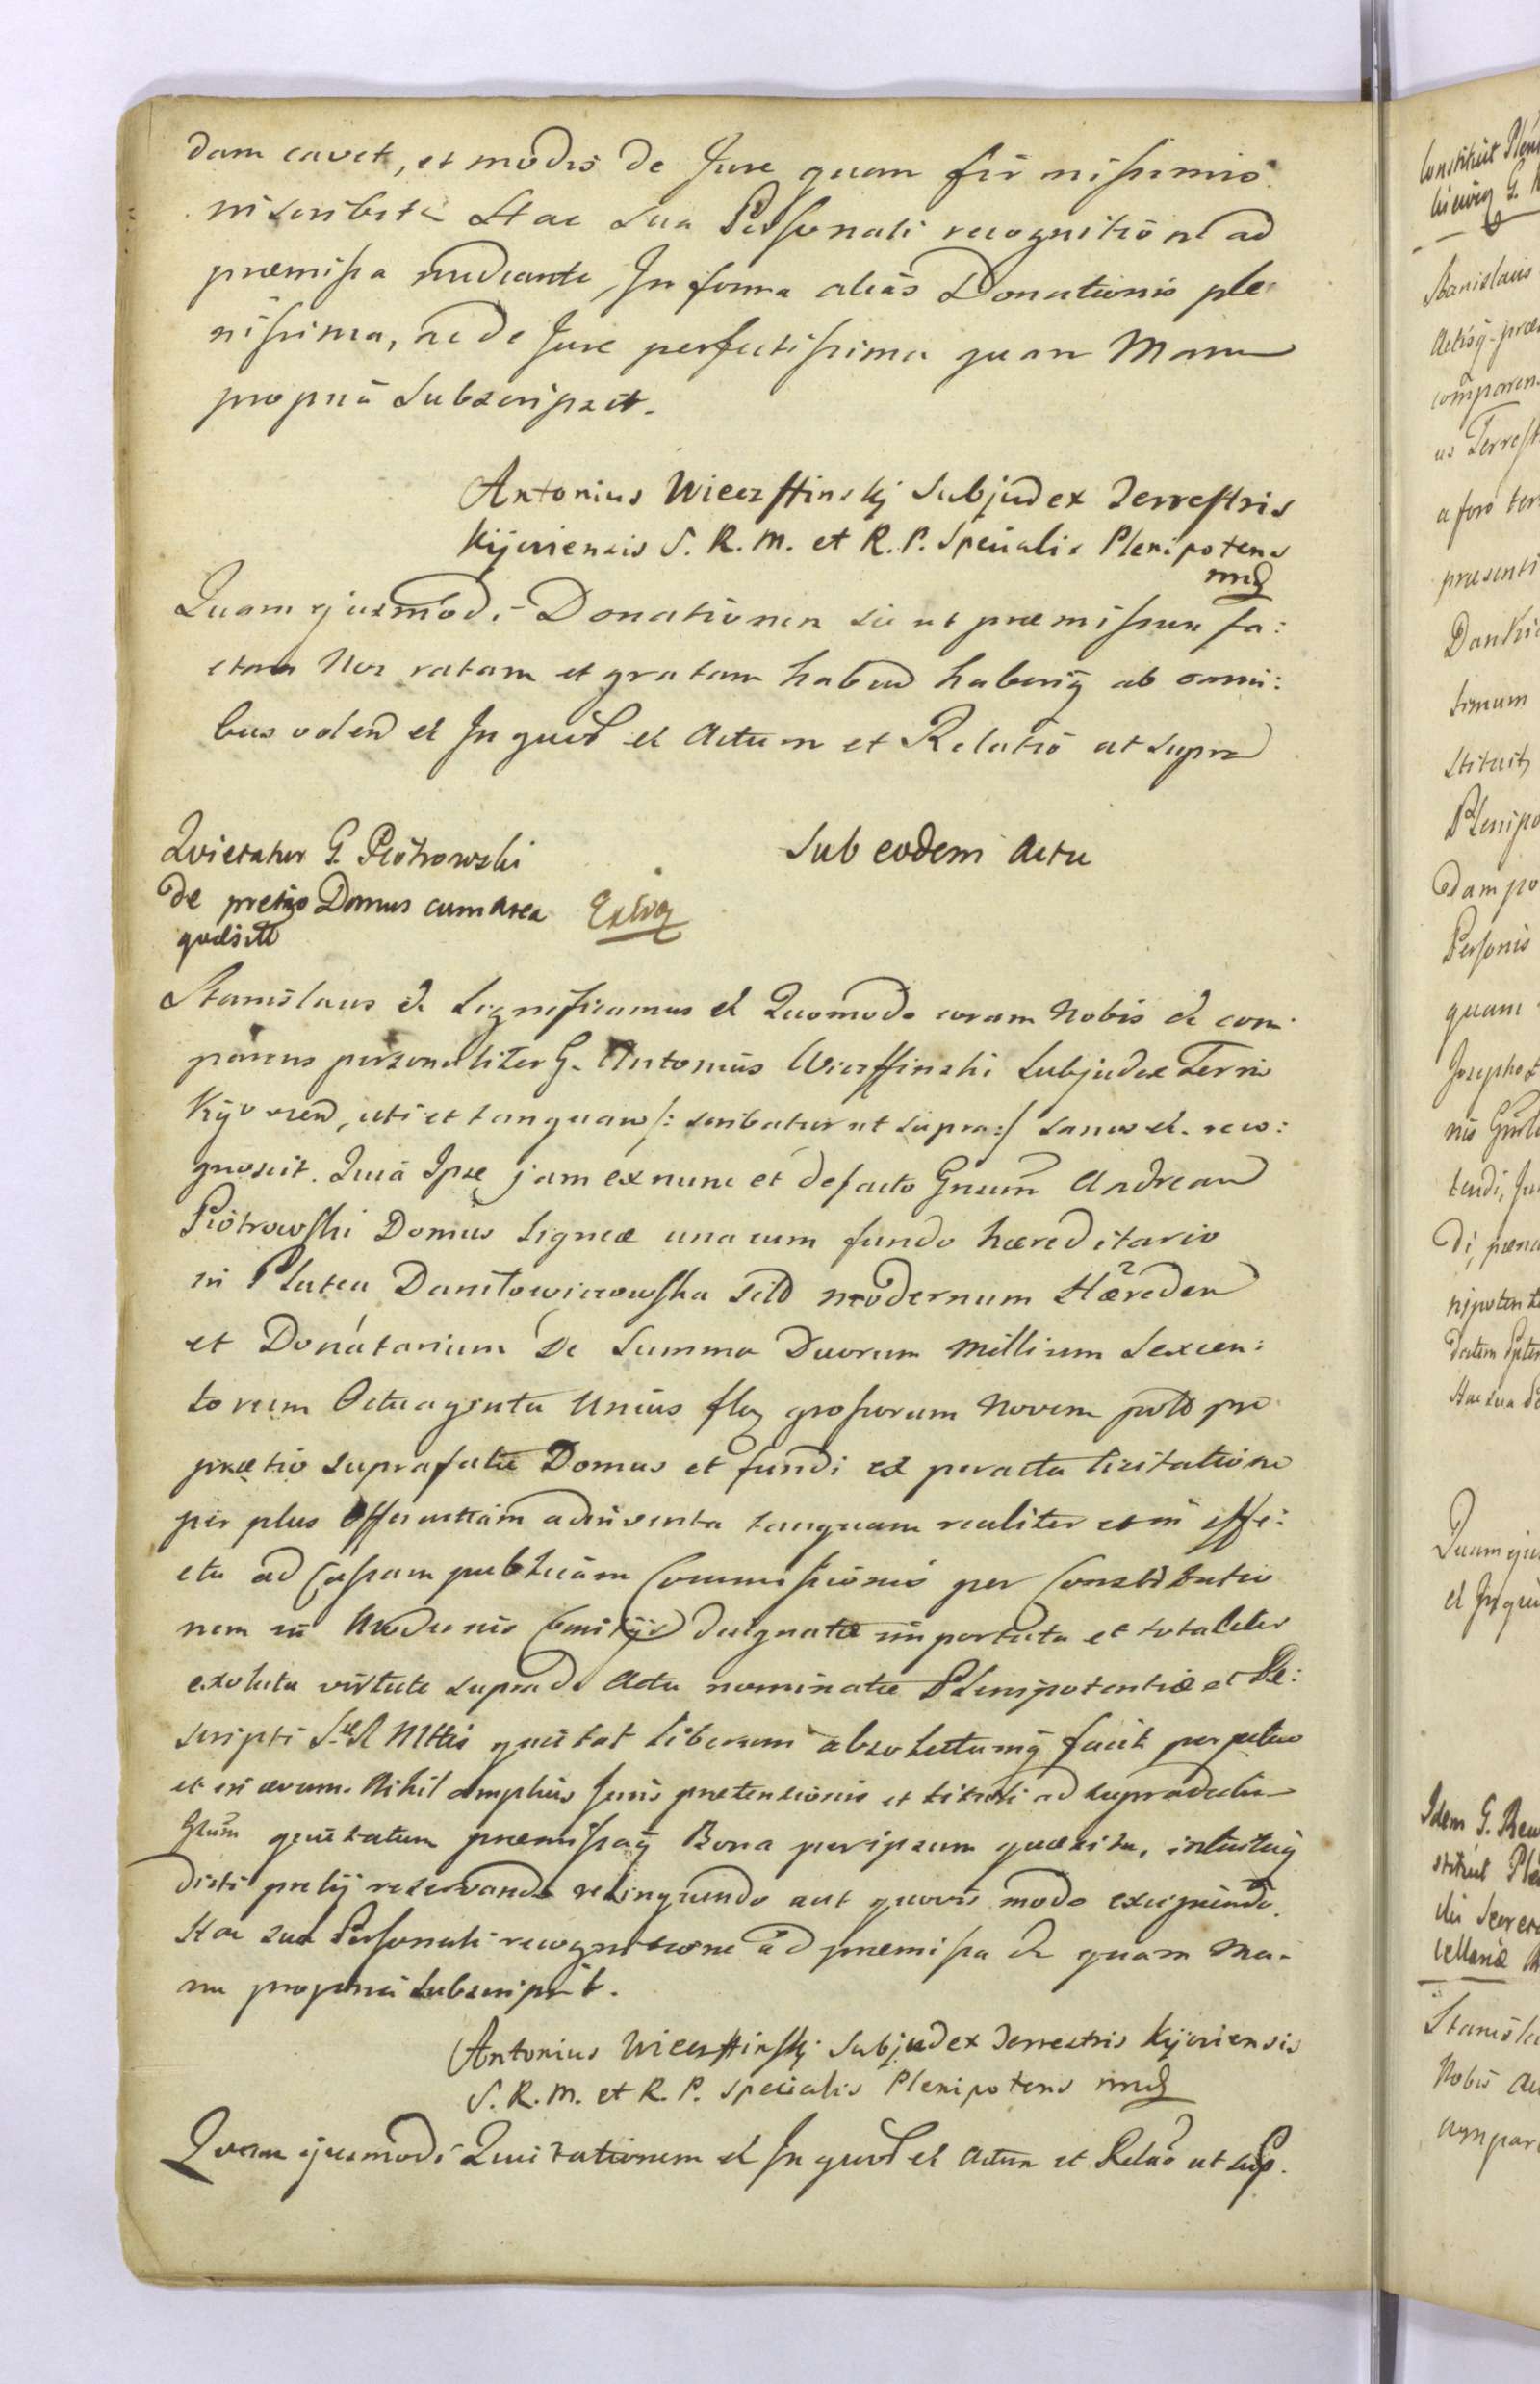 dam cavet, et modis de Jure quam firmissimis
inscribit Hac Sua Personali recognitiōne ad
præmissa mediante, In forma aliàs Donationis ple
nissima, ac de Jure perfectissima quam Manu
propriâ Subscripsit.
Antonius Wierzffinskj Subjudex Terrestris
Kijoviensis S. R. M. et R. P. Specialis Plenipotens
mpp
Quam ejusmodi Donationem sic ut præmissum fa:
ctam Nos ratam et gratam habend haberiq ab omni:
bus volend et In quor et Actum et Relatiō ut supra
Quietatur G. Piotrowski
de pretio Domus cum area
quæsitæ
Sub eodem Actu
Stanislaus & Significamus & Quomodo coram Nobis & com
parens personaliter G. Antonius Wierzffinski Subjudex Terris
Kijovien, uti et tanquam /: scribatur ut supra :/ sanus &. reco:
gnovit. Quiâ Ipse jam ex nunc et de facto Gnsum Andream
Piotrowski Domus ligneæ una cum fundo hæreditario
in Platea Daniłowiczowska sito modernum Hæredem
et Donatarium De Summa Duorum Millium Sexcen:
torum Octuaginta Unius flor grossorum Novem pol pro
prætio suprafatæ Domus et fundi ex peracta licitatione
per plus Offerentiam adinventa tanquam realiter cum effe:
ctu ad Cassam publicam Commissionis per Constitutio
nem in Modernis Comitijs designatæ importata et totaliter
exoluta virtute supra de Actu nominatæ Plenipotentiæ et Re:
scripti S. R. Mttis quietat liberum absolutumq facit perpetuo
et in ævum. Nihil amplius Juris prætensionis et tituli ad supradictu
Gsum quietatum præmissaq Bona per ipsum quæsita, intuituq
dicti pretij reservando relinquendo aut quovis modo excipiendo.
Hac sua Personali recognitione ad præmissa & quam Ma-
nu propria subscripsit.
Antonius Wierzffinskj Subjudex Terrestris Kijoviensis
S. R. M. et R. P. Specialis Plenipotens mpp
Quam ejusmodi Quietationem & In quor & Actum et Relaō ut sup.
Constituit
Stanislaus
Actisq præ
comparens
us Terrest
a foro
præsenti
stituit
Plenipo
dam po
Personis
quam
Josepho
Quam ejus
Idem G.
Stanisla
Nobis